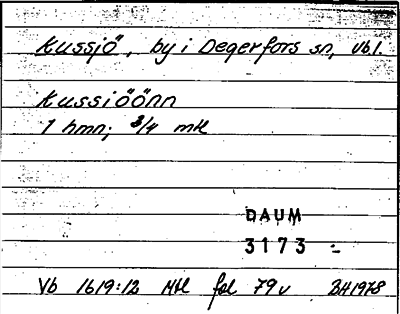 Kussjö, by i Degerfors sn, Vbl.
Kussiöönn
1 hmn; 3/4 mtl
DAUM
3173 -
Vb 1619:12 Mtl fol 79v BH1978